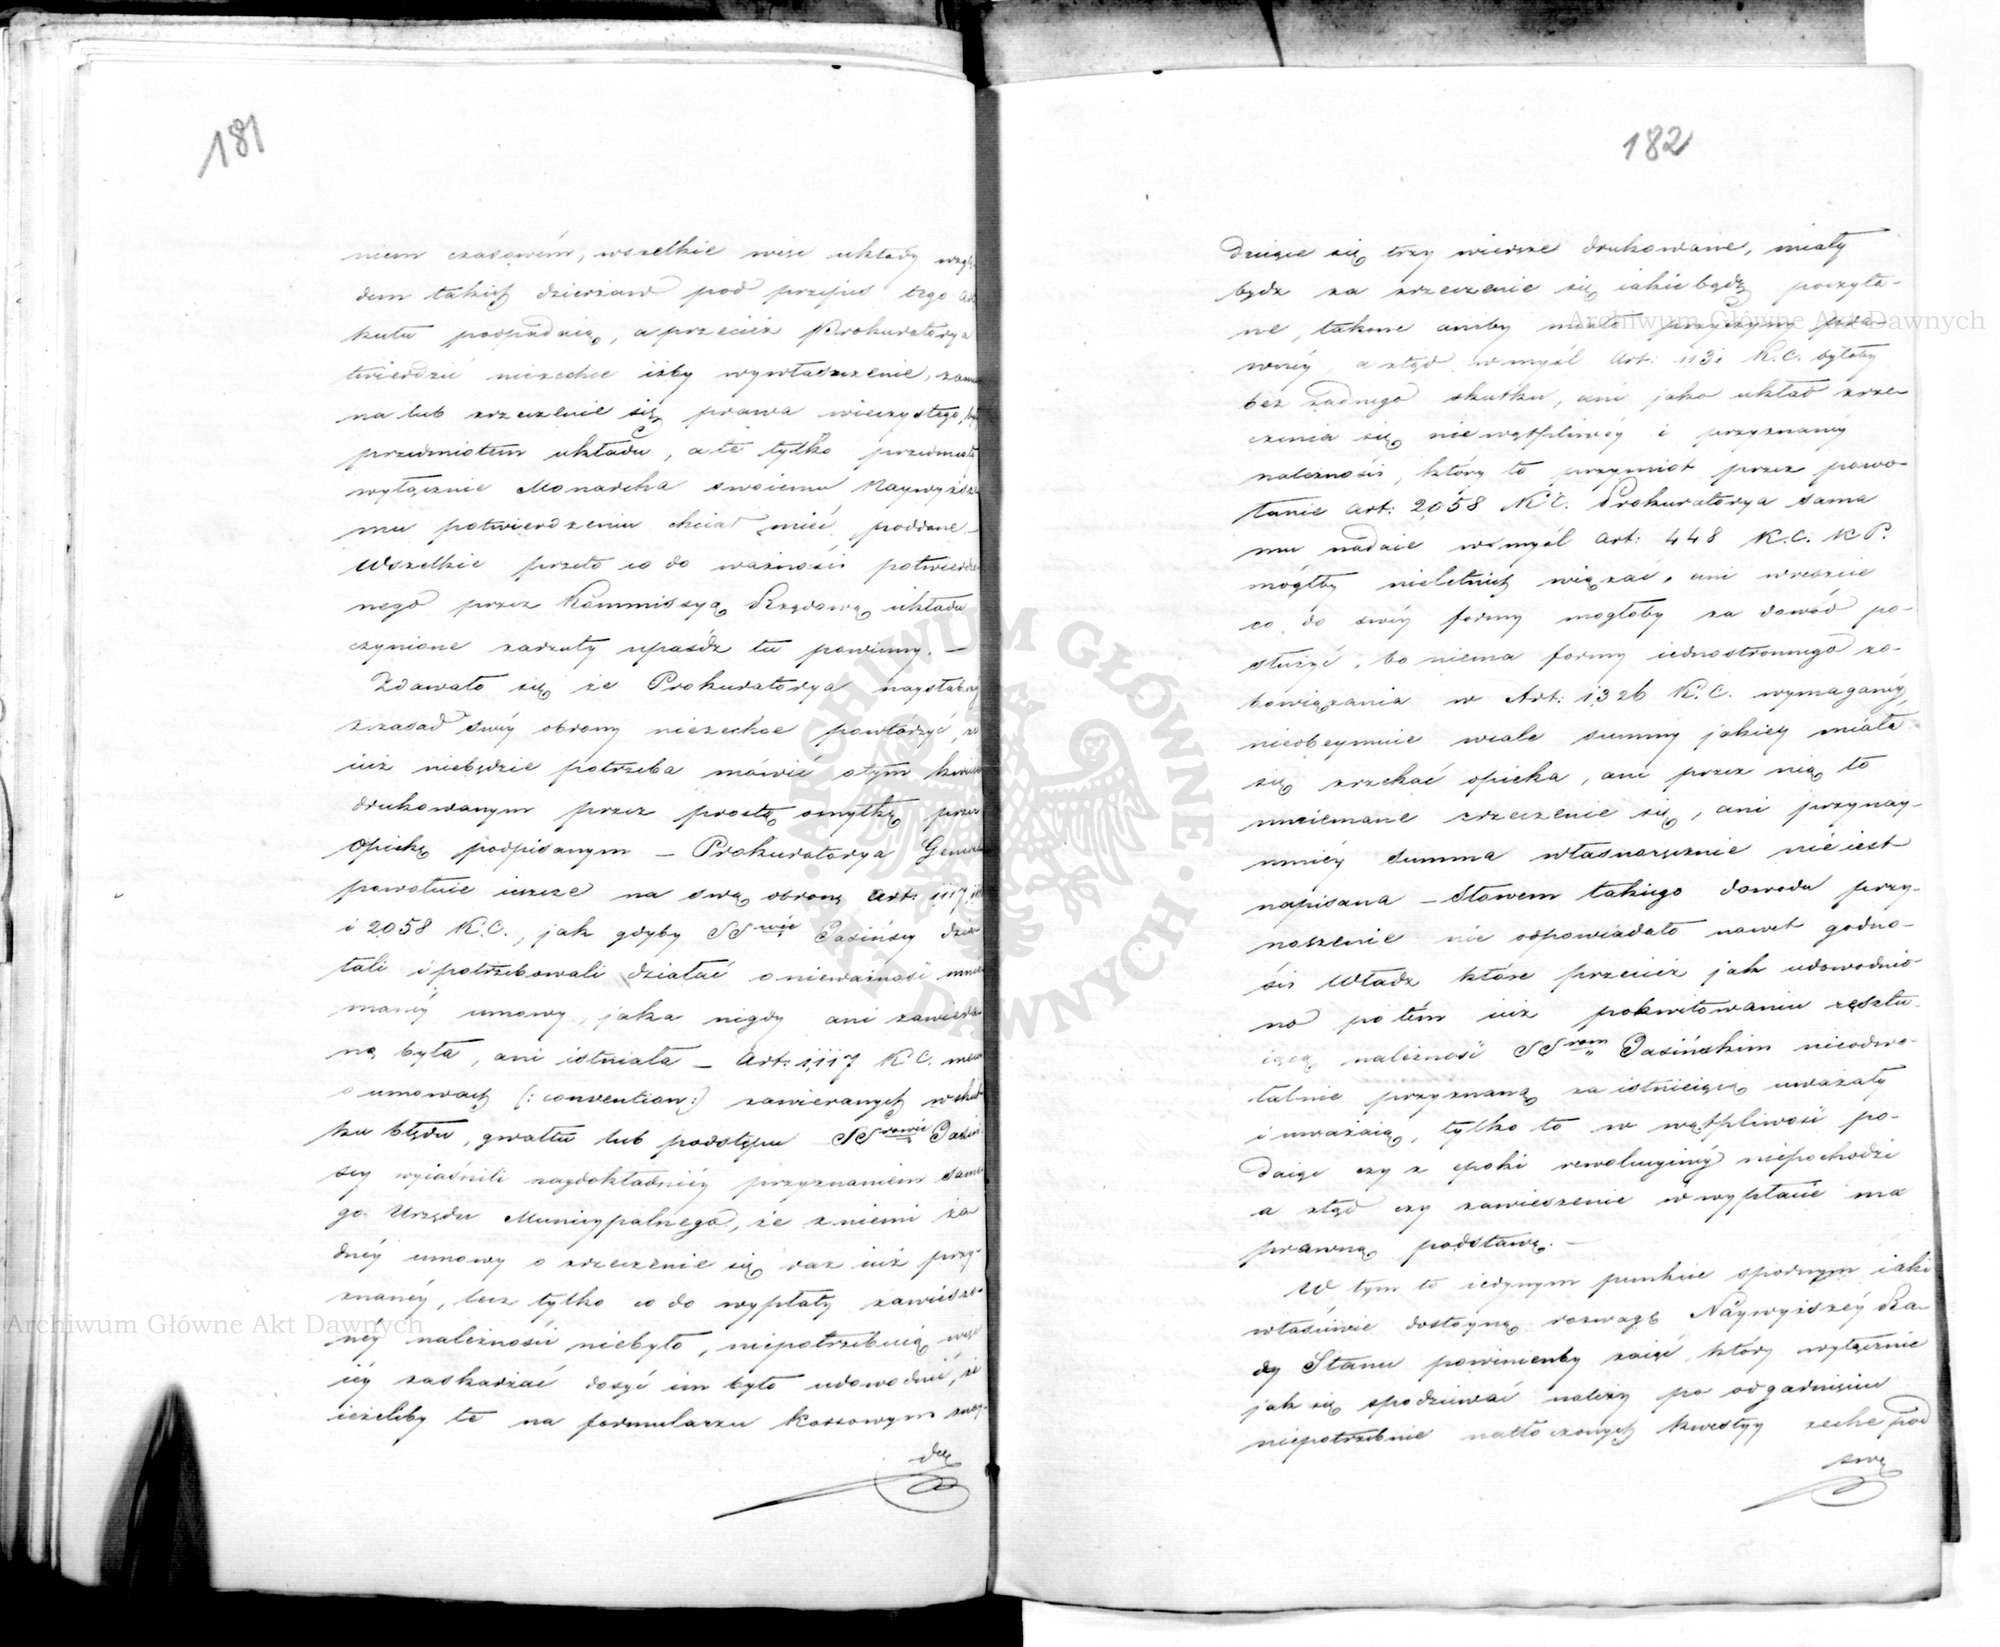 181
niem czasowém, wszelkie więc układy wzglę
dem takich dzierżaw pod przepis tego Ar
kułu podpadaią, a przecież Prokuratorya
twierdzić niezechce iżby wywłaszczenie, zamia
na lub zrzeczenie się prawa wieczystego,
przedmiotem układu, a te tylko przedmiota
wyłącznie Monarcha swoiemu Naywyższe
mu potwierdzeniu chciał mieć poddane –
Wszelkie przeto co do ważności potwierdzo
nego przez Kommissyą Rządową układu
czynione zarzuty upaśdź tu powinny. –
Zdawało się że Prokuratorya naysłabszey
z zasad swéy obrony niezechce powtórzyć, że
iuż niebędzie potrzeba mówić o tym kwicie
drukowanym przez prostą omyłkę przez
Opiekę podpisanym – Prokuratorya Genera
powołuie ieszcze na swą obronę Art: 1117,
i 2058 K.C., jak gdyby SSwie Jasińscy dzia
łali i potrzebowali działać o nieważność mnie
manéy umowy, jaka nigdy ani zawiera
ną była, ani istniała – Art: 1117 K C. mówi
o umowach (: convention :) zawieranych w skut
ku błędu, gwałtu lub podstępu SSrowie Jasiń
scy wyiaśnili naydokładniéy przyznaniem same
go Urzędu Municypalnego, że z niemi ża
dnéy umowy o zrzeczenie się raz iuż przy-
znanéy, lecz tylko co do wypłaty zawieszo-
néy należności niebyło, niepotrzebuią więc
iéy zaskarżać dosyć im było udowodnić, że
ieżeliby te na formularzu kassowym znay-
duią
182
duiące się trzy wiersze drukowane, miały
bydz za zrzeczenie się iakiebądź poczyta-
ne, takowe aniby miało przyczyny pra-
wnéy, a ztąd w myśl Art: 1131 K.C. byłoby
bez żadnego skutku, ani jako układ zrze-
czenia się niewątpliwéy i przyznanéy
należności, który to przymiot przez powo-
łanie Art: 2058 K C. Prokuratorya sama
mu nadaie w myśl Art: 448 K.C. K P.
mógłby nieletnich wiązać, ani wreszcie
co do swéy formy mogłoby za dowód po-
służyć, bo niema formy iednostronnego zo-
bowiązania w Art: 1326 K.C. wymaganéy,
nieobeymuie wcale summy jakiéy miała
się zrzekać opieka, ani przez nią to
mniemane zrzeczenie się, ani przynay-
mniéy summa własnoręcznie nie iest
napisana – Słowem takiego dowodu przy-
noszenie nie odpowiadało nawet godno-
ści Władz które przecież jak udowodnio-
no potém iuż pokwitowaniu resztu-
iącą należność SSrom Jasińskim nieodwo-
łalnie przyznaną za istnieiącą uważały
i uważaią, tylko to w wątpliwość po-
daiąc czy z epoki rewolucyinéy niepochodzi
a ztąd czy zawieszenie w wypłacie ma
prawną podstawę. –
W tym to iedynym punkcie spornym iaki
właściwie dostoyną rozwagę Naywyiszéy Ra-
dy Stanu powinienby zaiąć, który wyłącznie
jak się spodziewać należy po odgarnięciu
niepotrzebnie natłoczonych kwestyy zechce pod
swą